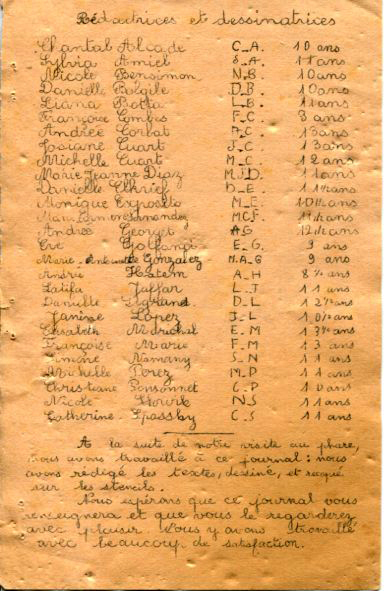 Rédactrices et dessinatrices
Chantal Alcade C.A. 10 ans
Sylvia Amiel S.A. 11 ans
Nicole Bensimon N.B. 10 ans
Danielle D.B. 10 ans
Liana Botta L.B. 11 ans
Françoise Combes F.C. ans
Andrée Corbat A.C. 13 ans
Josiane Cuart J.C 13 ans
Michelle Cuart M.C 12 ans
Marie Jeanne Diaz M.J.D. 11 ans
Danielle D.E. ans
Monique Exposito M.E. 10 1/2 ans
Fernandez MCF. ans
Andrée Georget AG ans
Eve E.G. 9 ans
Marie Gonzalez M.A.G 9 ans
André A.H 8 ans
Latifa Jaffar L.J 11 ans
Danielle D.L 12 1/2 ans
Janine Lopez J.L ans
Elisabeth E.M ans
Françoise Marie F.M 13 ans
Simone S.N 11 ans
Michelle Perez M.P 11 ans
Christiane Ponsonnet C.P 10 ans
Nicole N.S 11 ans
Catherine Spassky C.S 11 ans
A la suite de notre visite au phare,
nous avons travaillé à ce journal: nous
avons rédigé les textes, dessiné, et
sur les stencils.
Nous espérons que ce journal vous
renseignera et que vous le regarderez
avec plaisir. Nous y avons travaillé
avec beaucoup de satisfaction.